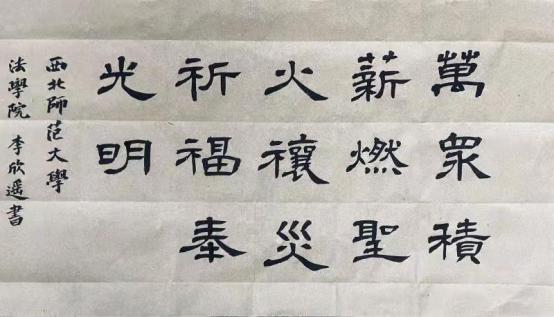 萬眾積
薪燃聖
火禳災
祈福奉
光明
西北師范大學
法學院 李欣遥書